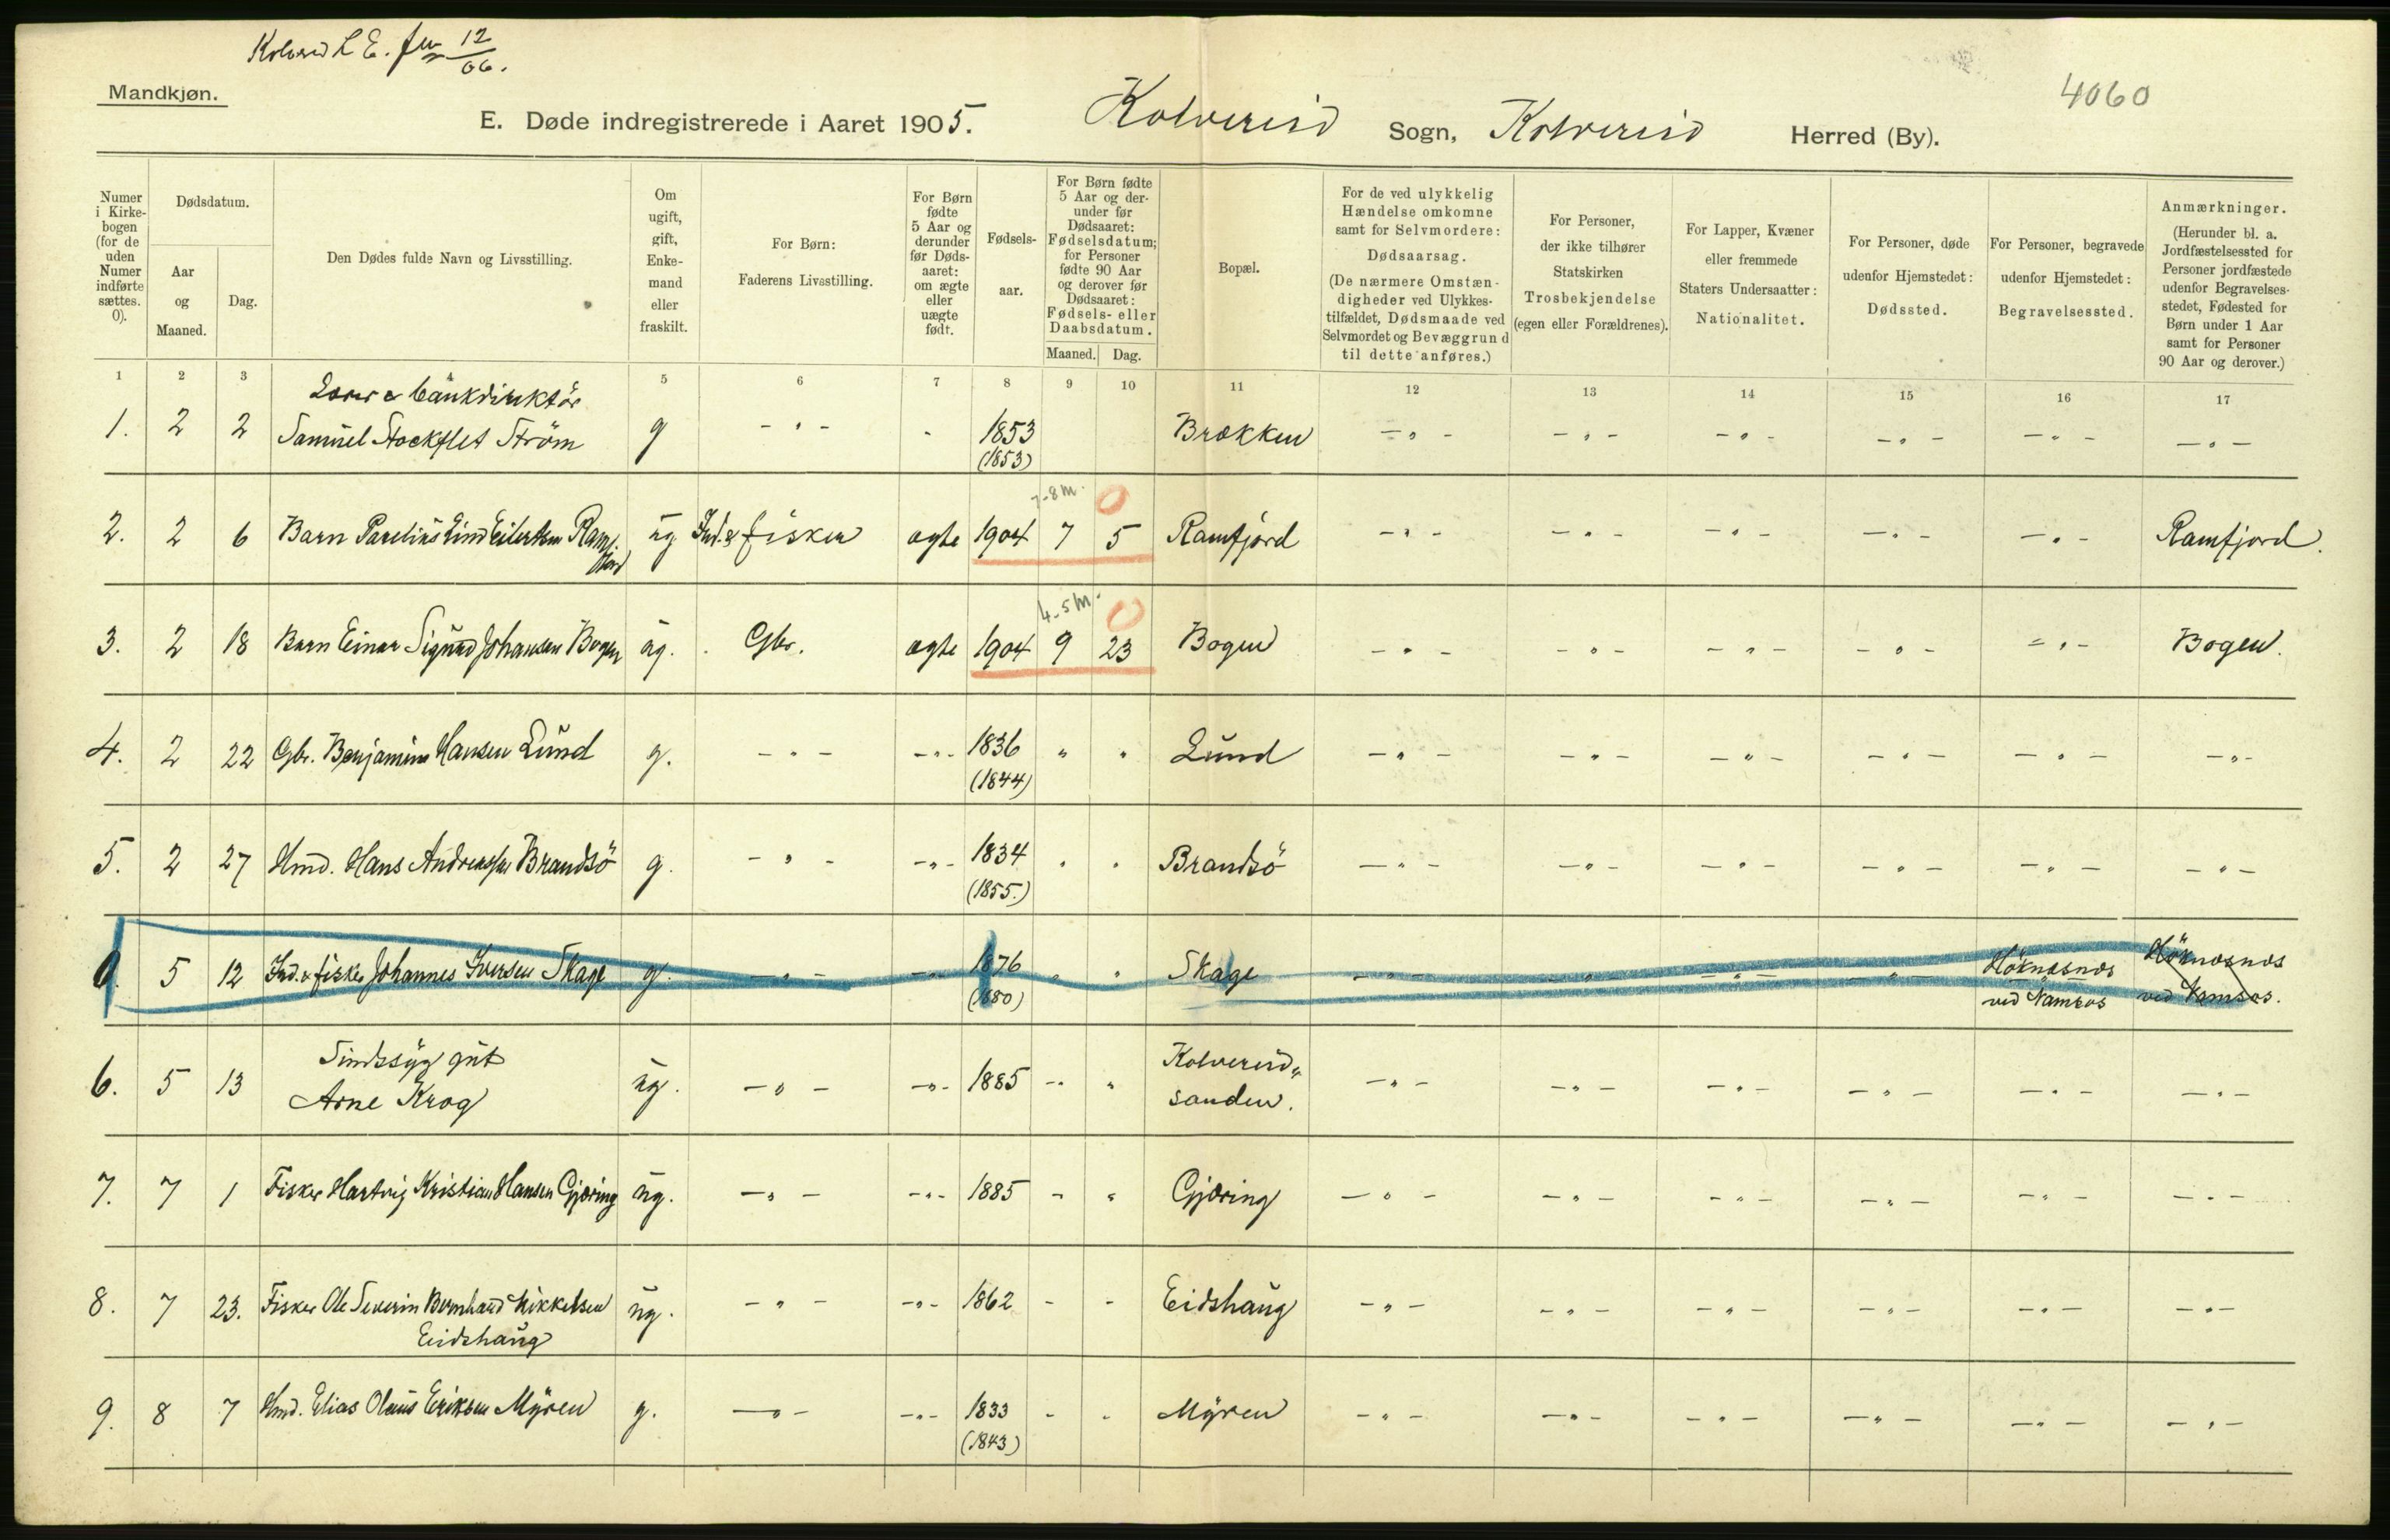 Kolvereid L E. fm 12/06.
Mandkjøn.
4060
E. Døde indregistrerede i Aaret 1905. Kolvereid Sogn, Kolvereid Herred (By).
Numer i Kirkebogen (for de uden Numer indførte sættes. 0).
Dødsdatum.
Aar og Maaned.
Dag.
Den Dødes fulde Navn og Livsstilling.
Om ugift, gift, Enkemand eller fraskilt.
For Børn: Faderens Livsstilling.
For Børn fødte 5 Aar og derunder før Dødsaaret: om ægte eller uægte født.
Fødselsaar.
For Børn fødte 5 Aar og derunder før Dødsaaret: Fødselsdatum; for Personer fødte 90 Aar og derover før Dødsaaret: Fødsels- eller Daabsdatum.
Maaned. Dag.
Bopæl.
For de ved ulykkelig Hændelse omkomne samt for Selvmordere: Dødsaarsag. (De nærmere Omstændigheder ved Ulykkestilfældet, Dødsmaade ved Selvmordet og Bevæggrund til dette anføres.)
For Personer, der ikke tilhører Statskirken Trosbekjendelse (egen eller Forældrenes).
For Lapper, Kvæner eller fremmede Staters Undersaatter: Nationalitet.
For Personer, døde udenfor Hjemstedet: Dødssted.
For Personer, begravede udenfor Hjemstedet: Begravelsessted.
Anmærkninger. (Herunder bl. a. Jordfæstelsessted for Personer jordfæstede udenfor Begravelsesstedet, Fødested for Børn under 1 Aar samt for Personer 90 Aar og derover.)
1 2 3 4 5 6 7 8 9 10 11 12 13 14 15 16 17
bankdirektör
1. 2 2 Samuel Stockflet Ström g - " - - 1853 Brækken - " - - " - - " - - " - - " - - " -
(1853)
7-8 m. 0
2. 2 6 Barn Parelius Eind Eilertsen Ramfjord ug Ind. & fisker ægte 1904 7 5 Ramfjord - " - - " - - " - - " - - " - Ramfjord.
4-5 m. 0
3. 2 18 Barn Einar Sigurd Johansen Bogen ug. Gbr. ægte 1904 9 23 Bogen - " - - " - - " - - " - - " - Bogen.
4. 2 22 Gbr. Benjamin Hansen Lund g. - " - - " - 1836 " " Lund - " - - " - - " - - " - - " - - " -
(1844)
5. 2 27 Hmd. Hans Andreassen Brandsö g. - " - - " - 1834 " " Brandsö - " - - " - - " - - " - - " - - " -
(1855.)
0. 5 12 Ind. & fisker Johannes Iversen Skage g. - " - - " - 1876 " " Skage - " - - " - - " - - " - Höknæsnæs Höknæsnæs
(1880) ved Namsos ved Namsos.
Sindssyg gut Kolvereid"
6. 5 13 Arne Krog ug. - " - - " - 1885 - " " sanden. - " - - " - - " - - " - - " - - " -
7. 7 1 Fisker Hartvig Kristian Hansen Gjæring ug. - " - - " - 1885 - " Gjæring - " - - " - - " - - " - - " - - " -
8. 7 23. Fisker Ole Severin Bernhard Mikkelsen ug. - " - - " - 1862 - - Eidshaug - " - - " - - " - - " - - " - - " -
Eidshaug
9. 8 7 Hmd. Elias Olaus Eriksen Myren g. - " - - " - 1833 - - Myren - " - - " - - " - - " - - " - - " -
(1843)